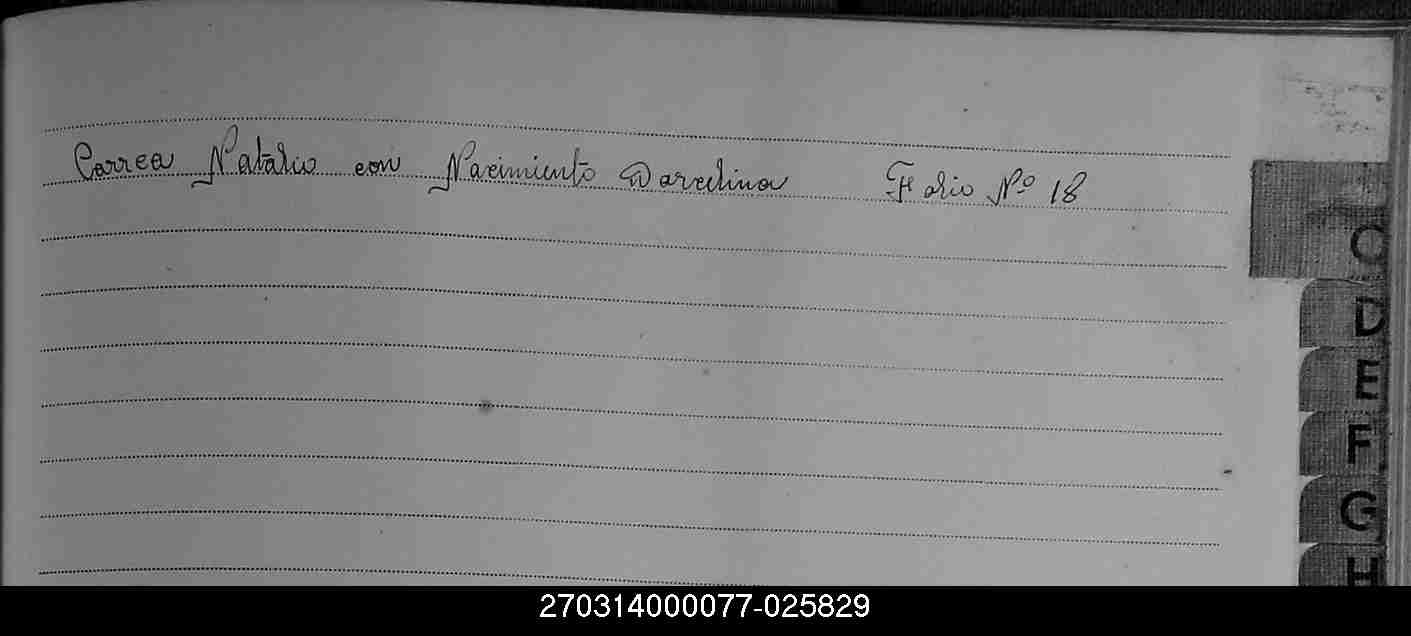 Correa Natalio con Nacimiento Darcelina Folio Nº 18
C
D
E
F
G
H
270314000077-025829